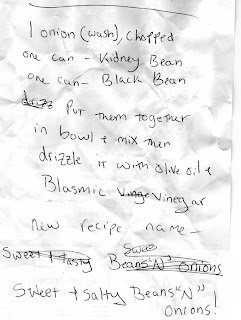 1 onion (wash), chopped
one can - Kidney Bean
one can - Black Bean
drizz Put them together
in bowl & mix then
drizzle it with olive oil &
Blasmic Vinge Vinegar
new recipe name -
Swee
Sweet & tasty Beans "N" onions
Sweet & Salty Beans "N"
onions!